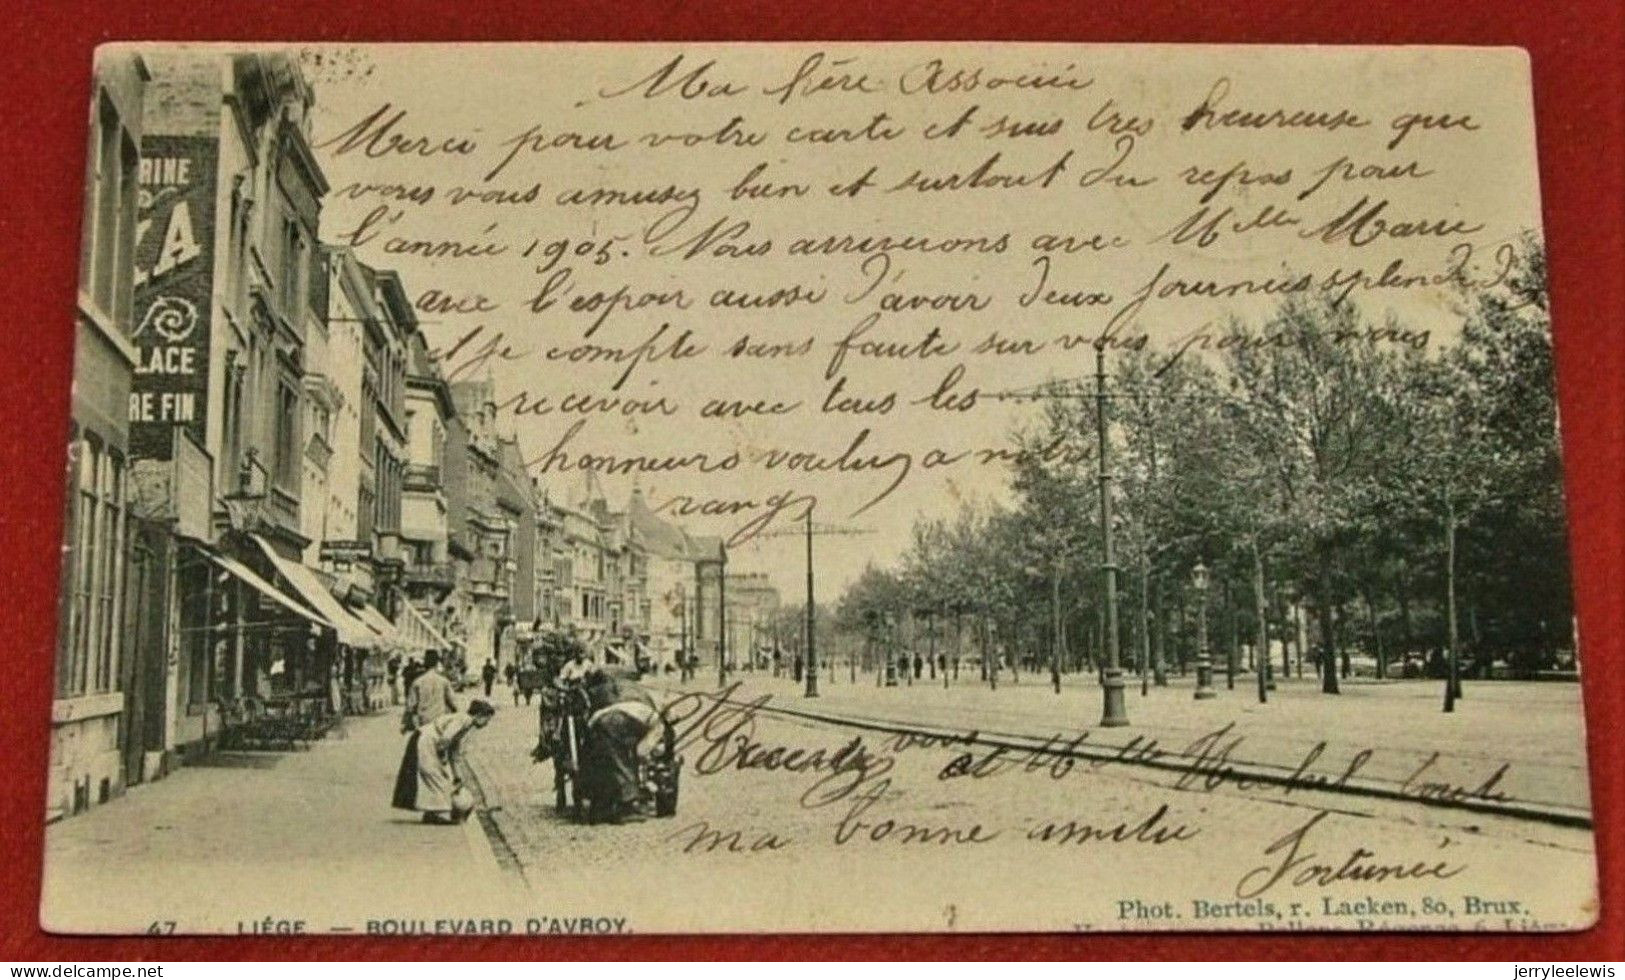 Ma chère Associée
Merci pour votre carte et suis tres heureuse que
vous vous amusez bien et surtout du repos pour
l'année 1905. Nous arriverons avec Mlle Marie
avec l'espoir aussi d'avoir deux journées splendides
et je compte sans faute sur vous pour nous
recevoir avec tous les
honneurs voulu a notre
rang
Recevez vous et Mlle toute
ma bonne amitié
Fortunée
RINE
A
LACE
RE FIN
47 LIÉGE. — BOULEVARD D'AVROY.
Phot. Bertels, r. Laeken, 80, Brux.